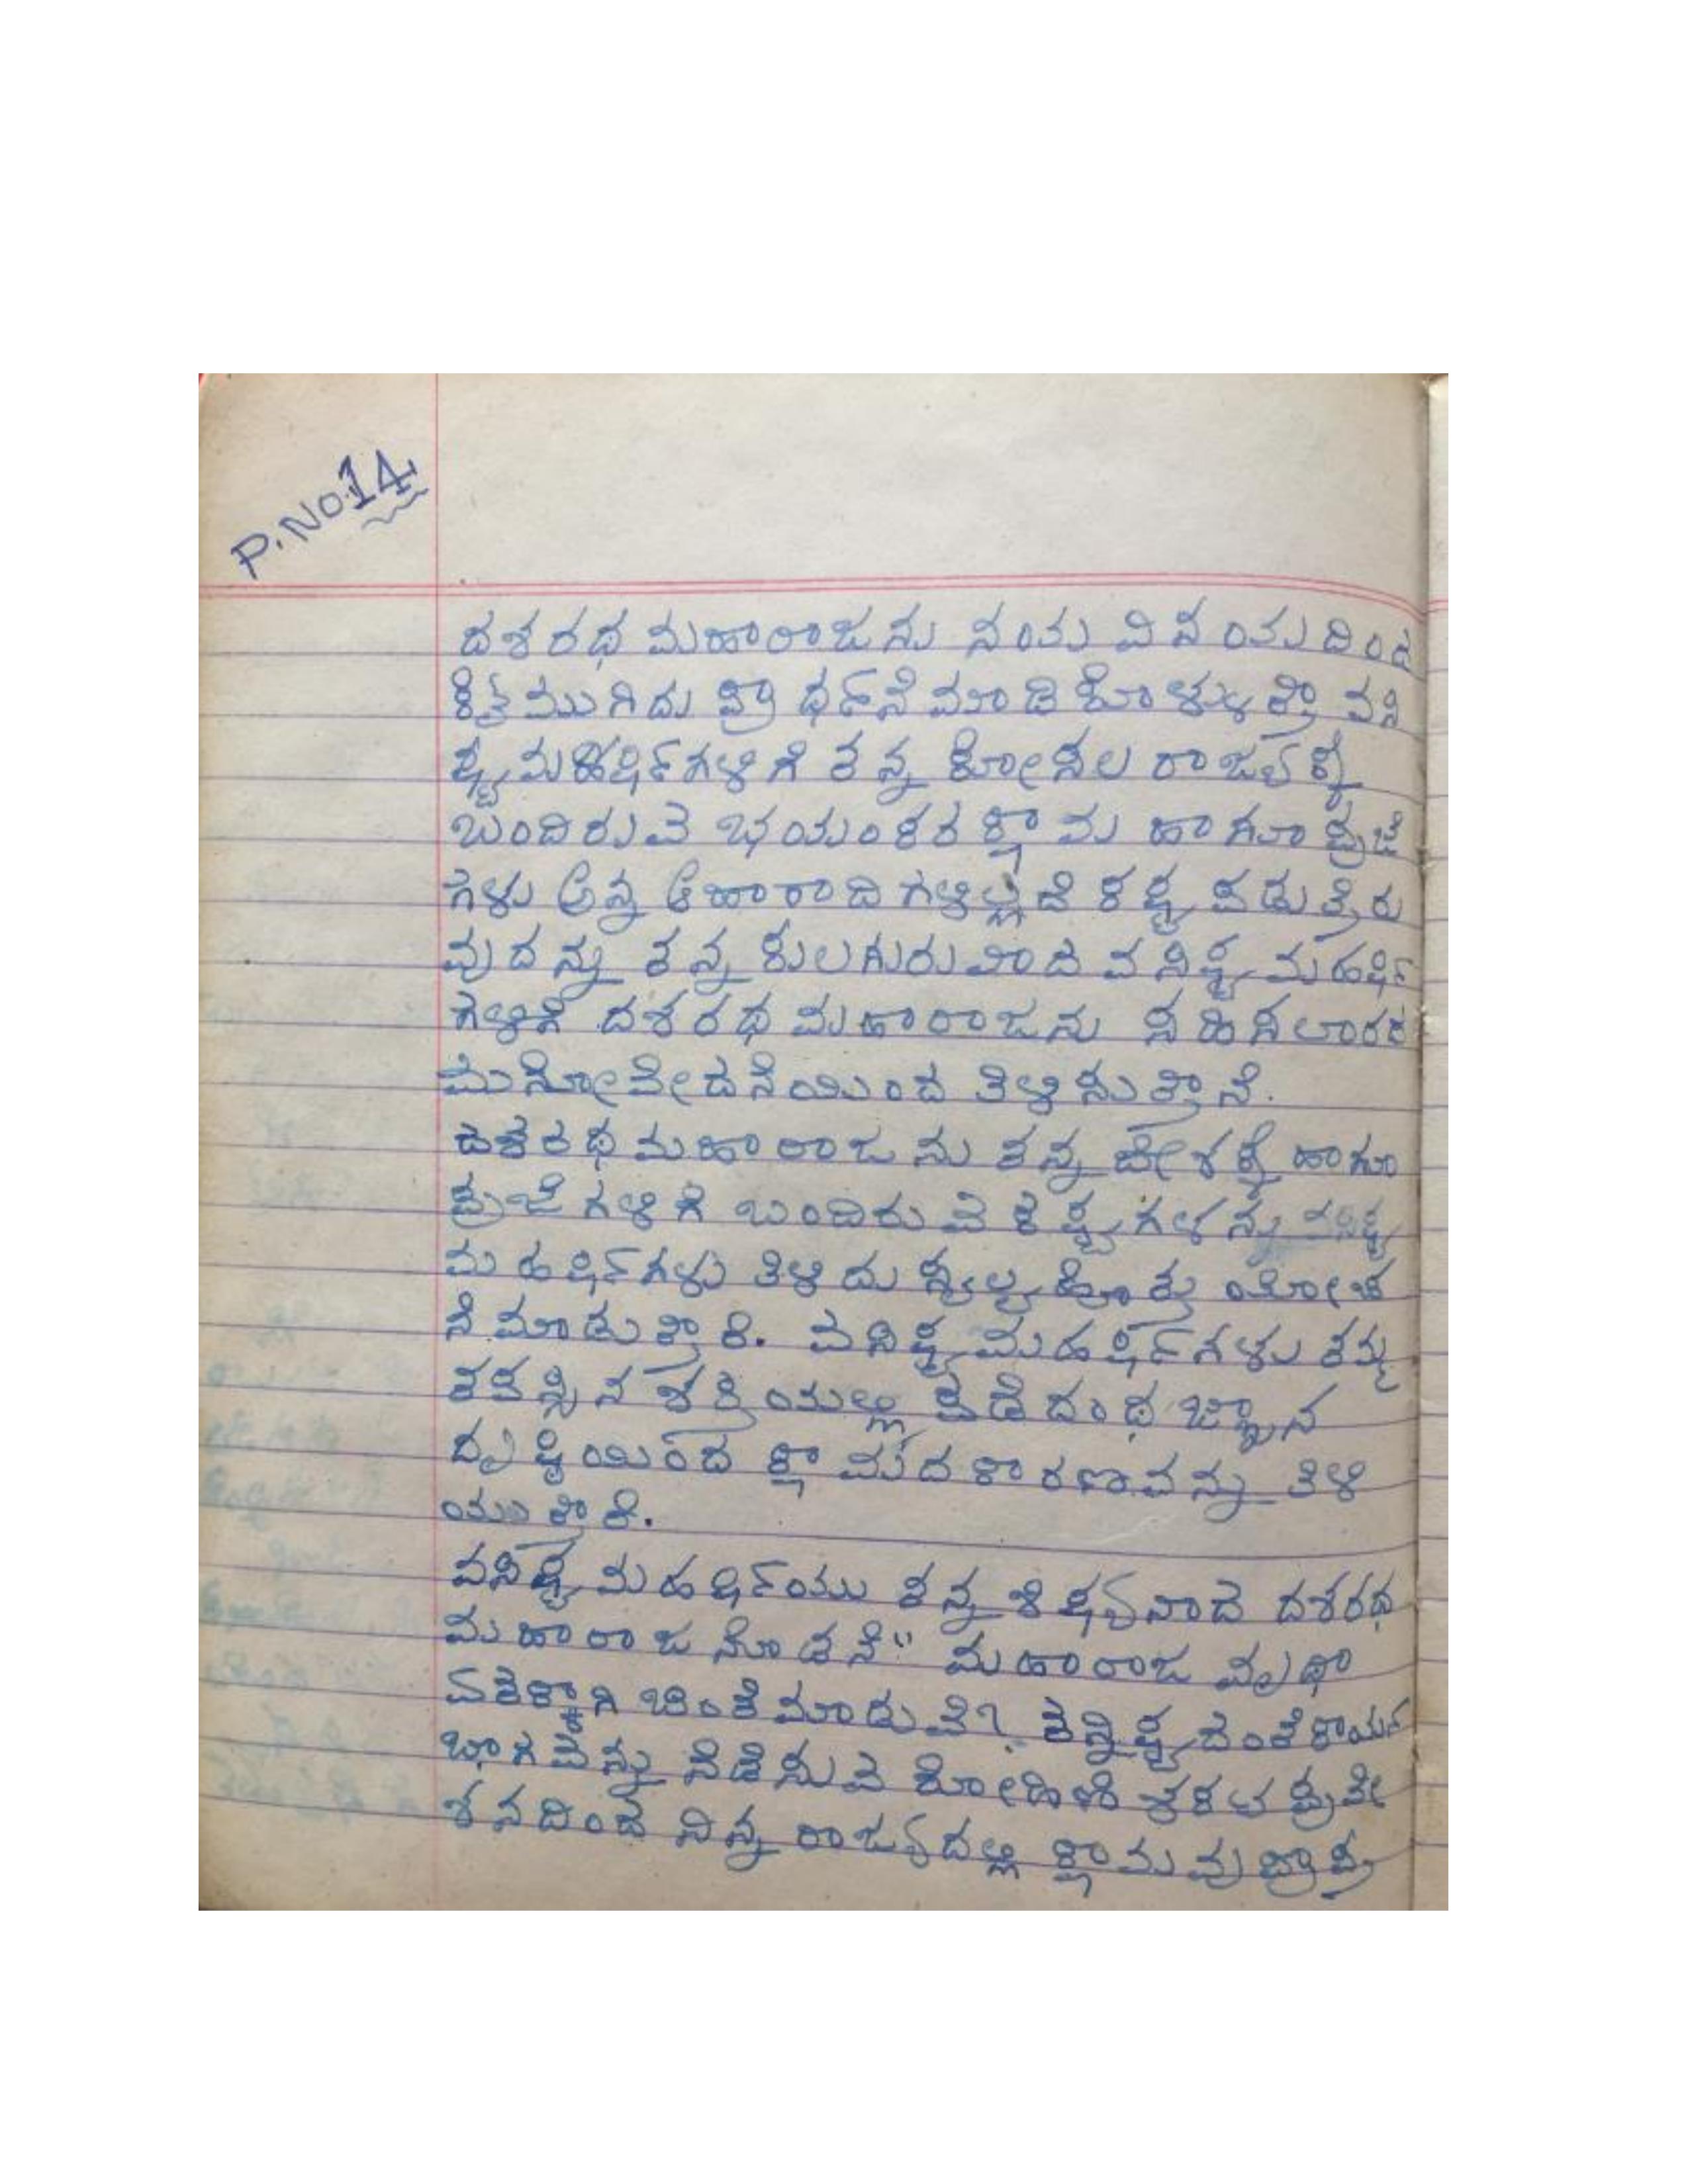 P.No.14
ದಶರಥ ಮಹಾರಾಜನು ನಯ ವಿನಯದಿಂದ
ಕೈಮುಗಿದು ಪ್ರಾರ್ಥನೆ ಮಾಡಿಕೊಳ್ಳುತ್ತಾ ವಸಿ
ಷ್ಠ ಮಹರ್ಷಿಗಳಿಗೆ ತನ್ನ ಕೋಸಲ ರಾಜ್ಯಕ್ಕೆ
ಬಂದಿರುವ ಭಯಂಕರ ಕ್ಷಾಮ ಹಾಗೂ ಪ್ರಜೆ
ಗಳು ಅನ್ನ ಆಹಾರಾದಿಗಳಿಲ್ಲದೆ ಕಷ್ಟ ಪಡುತ್ತಿರು
ವುದನ್ನು ತನ್ನ ಕುಲಗುರುವಾದ ವಸಿಷ್ಠ ಮಹರ್ಷಿ
ಗಳಿಗೆ ದಶರಥ ಮಹಾರಾಜನು ಸಹಿಸಲಾರದ
ಮನೋವೇದನೆಯಿಂದ ತಿಳಿಸುತ್ತಾನೆ.
ದಶರಥ ಮಹಾರಾಜನು ತನ್ನ ದೇಶಕ್ಕೆ ಹಾಗೂ
ಪ್ರಜೆಗಳಿಗೆ ಬಂದಿರುವ ಕಷ್ಟಗಳನ್ನು ವಸಿಷ್ಠ
ಮಹರ್ಷಿಗಳು ತಿಳಿದು ಸ್ವಲ್ಪ ಹೊತ್ತು ಯೋಚ
ನೆ ಮಾಡುತ್ತಾರೆ. ವಸಿಷ್ಠ ಮಹರ್ಷಿಗಳು ತಮ್ಮ
ತಪಸ್ಸಿನ ಶಕ್ತಿಯಲ್ಲಿ ಪಡೆದಂಥ ಜ್ಞಾನ
ದೃಷ್ಟಿಯಿಂದ ಕ್ಷಾಮದ ಕಾರಣವನ್ನು ತಿಳಿ
ಯುತ್ತಾರೆ.
ವಸಿಷ್ಠ ಮಹರ್ಷಿಯು ತನ್ನ ಶಿಷ್ಯನಾದ ದಶರಥ
ಮಹಾರಾಜನೊಡನೆ" ಮಹಾರಾಜ ವೃಥಾ
ಏತಕ್ಕಾಗಿ ಚಿಂತೆಮಾಡುವೆ?
ಭಾಗವನ್ನು ರೋಹಿಣಿ ಶಕಟ ಪ್ರವೇ
ಶನದಿಂದ ನಿನ್ನ ರಾಜ್ಯದಲ್ಲಿ ಕ್ಷಾಮವು ಪ್ರಾಪ್ತ